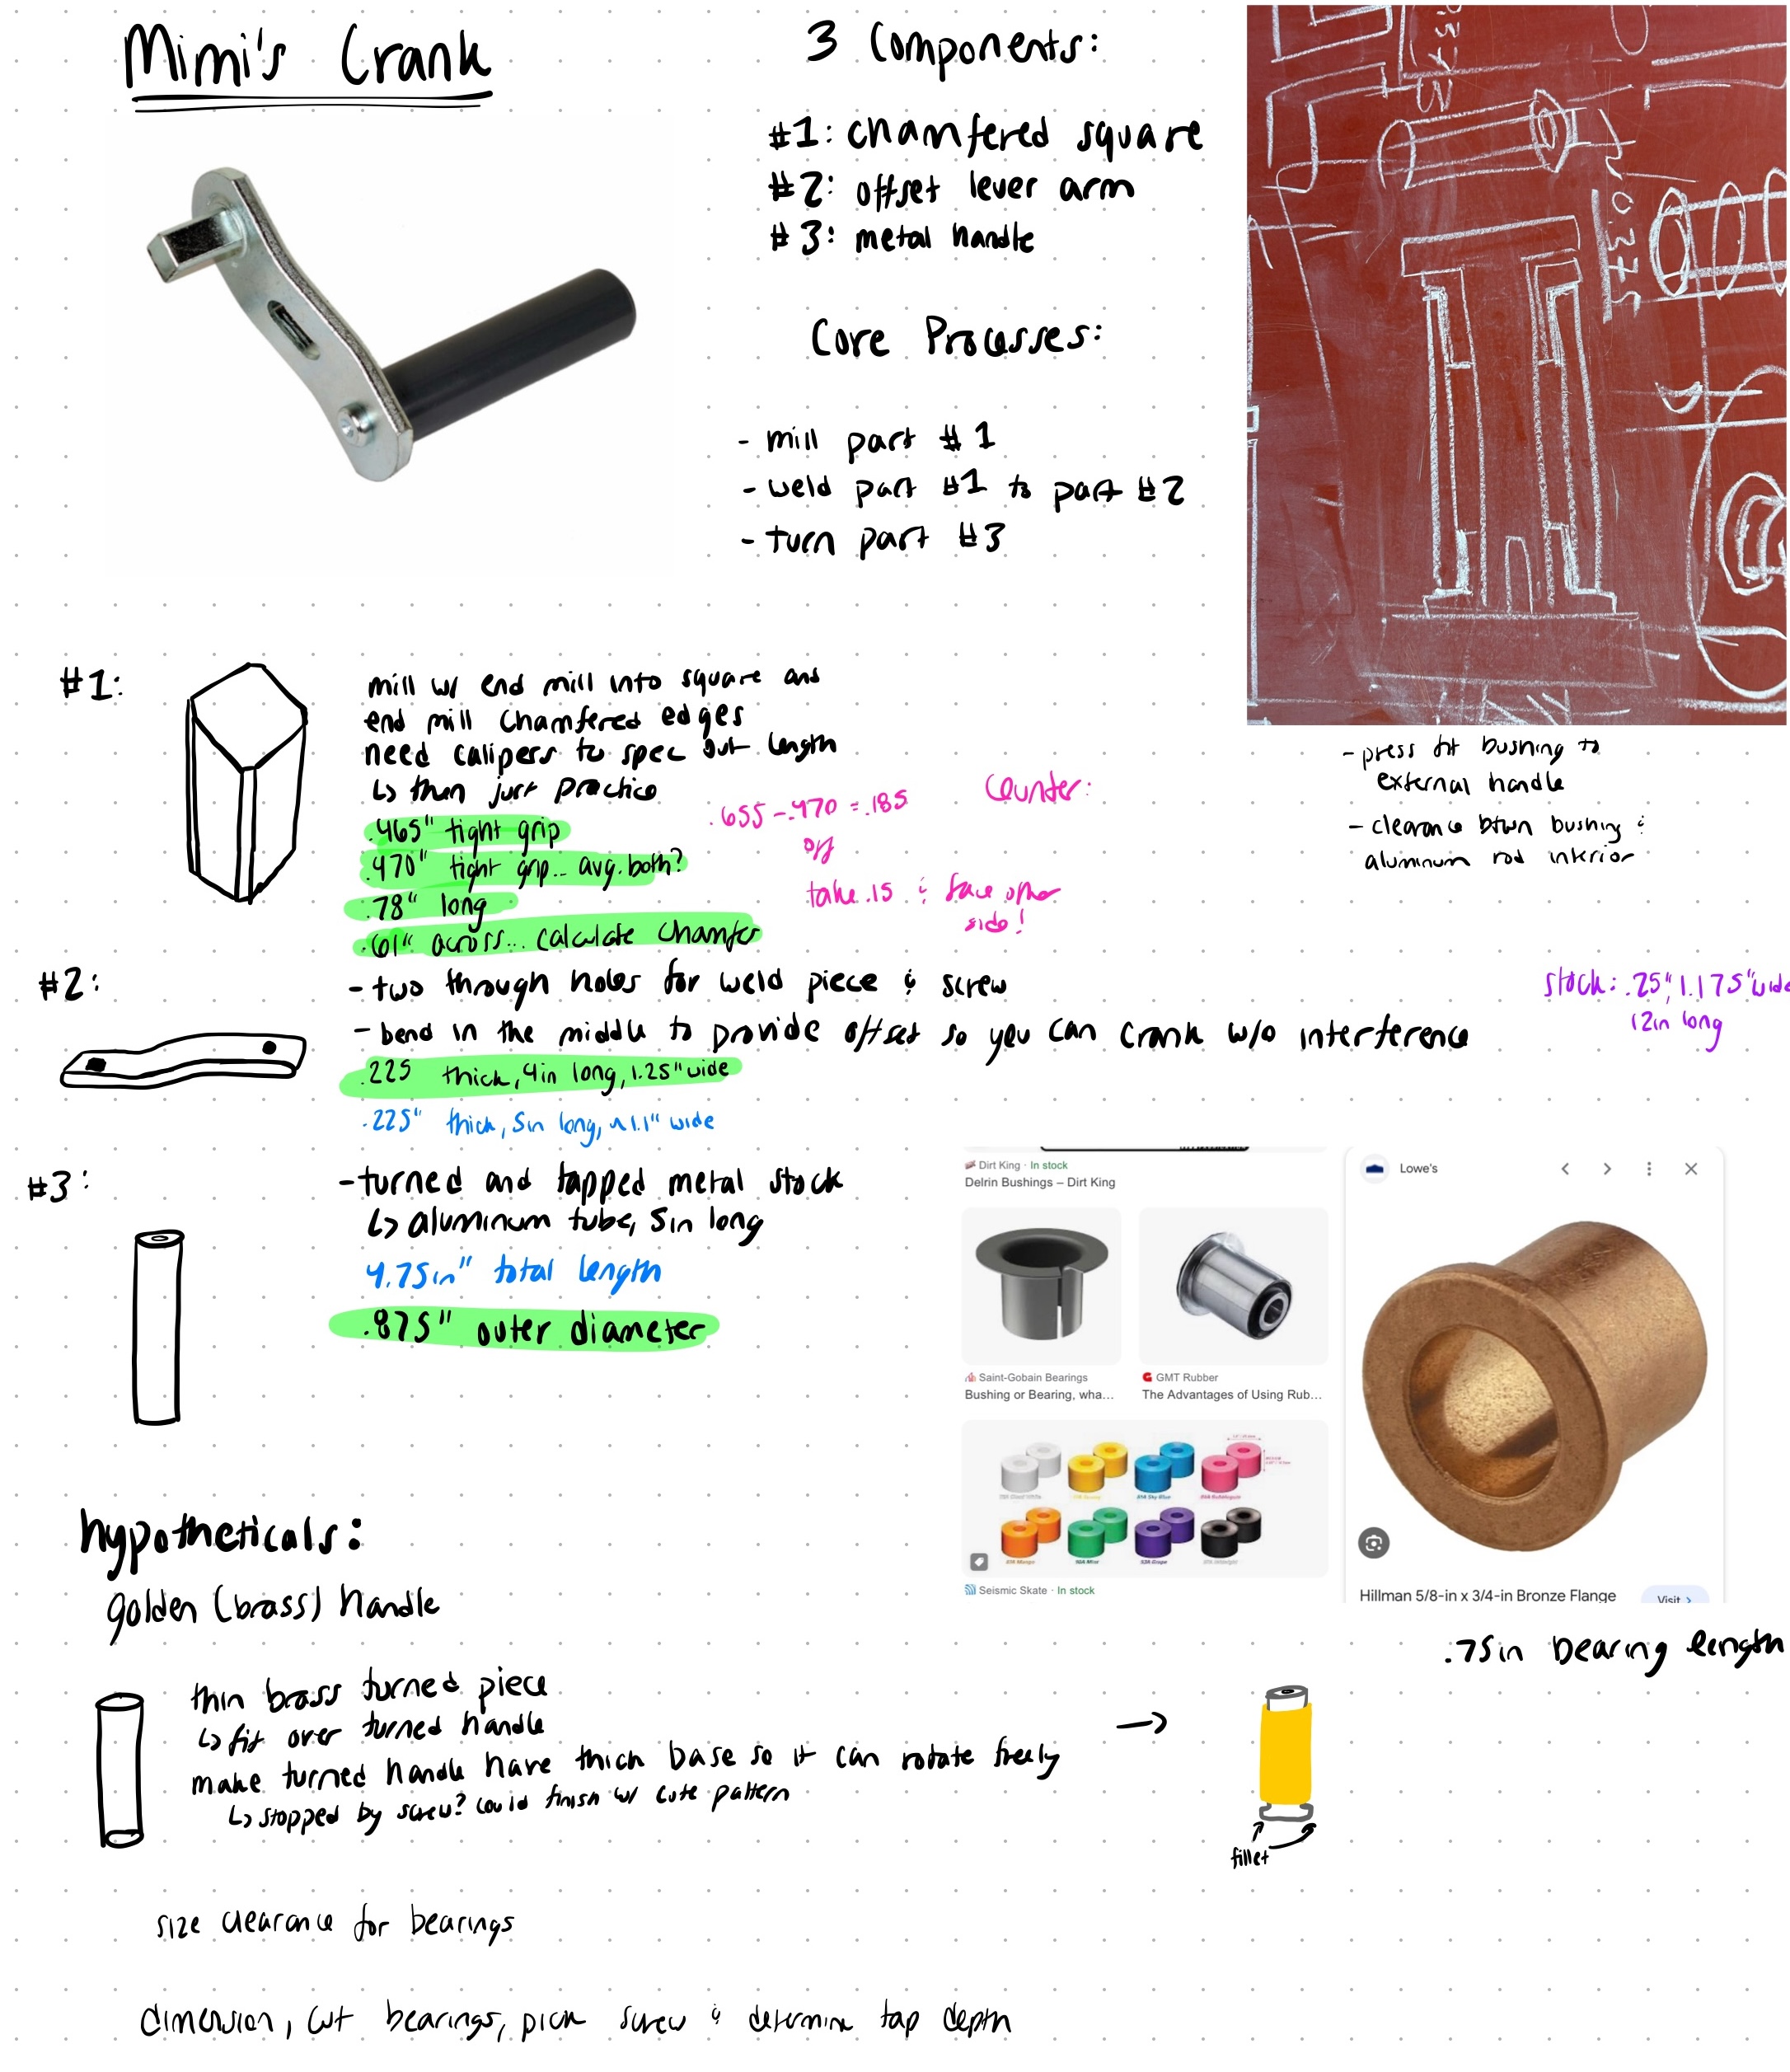 Mimi's Crank
3 Components:
#1: chamfered square
#2: offset lever arm
#3: metal handle
Core Processes:
- mill part #1
- weld part #1 to part #2
- turn part #3
0.375
- press fit bushing to
external handle
- clearance btwn bushing &
aluminum rod interior
#1:
mill w/ end mill into square and
end mill chamfered edges
need calipers to spec out length
↳ then just practice
.465" tight grip
.470" tight grip... avg. both?
.78" long
.61" across... calculate chamfer
.655 - .470 = .185
off
Counter:
take .15 & face other
side!
#2:
- two through holes for weld piece & screw
- bend in the middle to provide offset so you can crank w/o interference
.225 thick, 4in long, 1.25" wide
.225" thick, 5in long, ~1.1" wide
stock: .25", 1.175" wide
12in long
#3:
- turned and tapped metal stock
↳ aluminum tube, 5in long
4.75in" total length
.875" outer diameter
Dirt King · In stock
Delrin Bushings – Dirt King
Saint-Gobain Bearings
Bushing or Bearing, wha...
GMT Rubber
The Advantages of Using Rub...
Seismic Skate · In stock
Lowe's
Hillman 5/8-in x 3/4-in Bronze Flange
Visit >
.75in bearing length
hypotheticals:
golden (brass) handle
thin brass turned piece
↳ fit over turned handle
make turned handle have thick base so it can rotate freely
↳ stopped by screw? could finish w/ cute pattern
fillet
size clearance for bearings
dimension, cut bearings, pick screw & determine tap depth